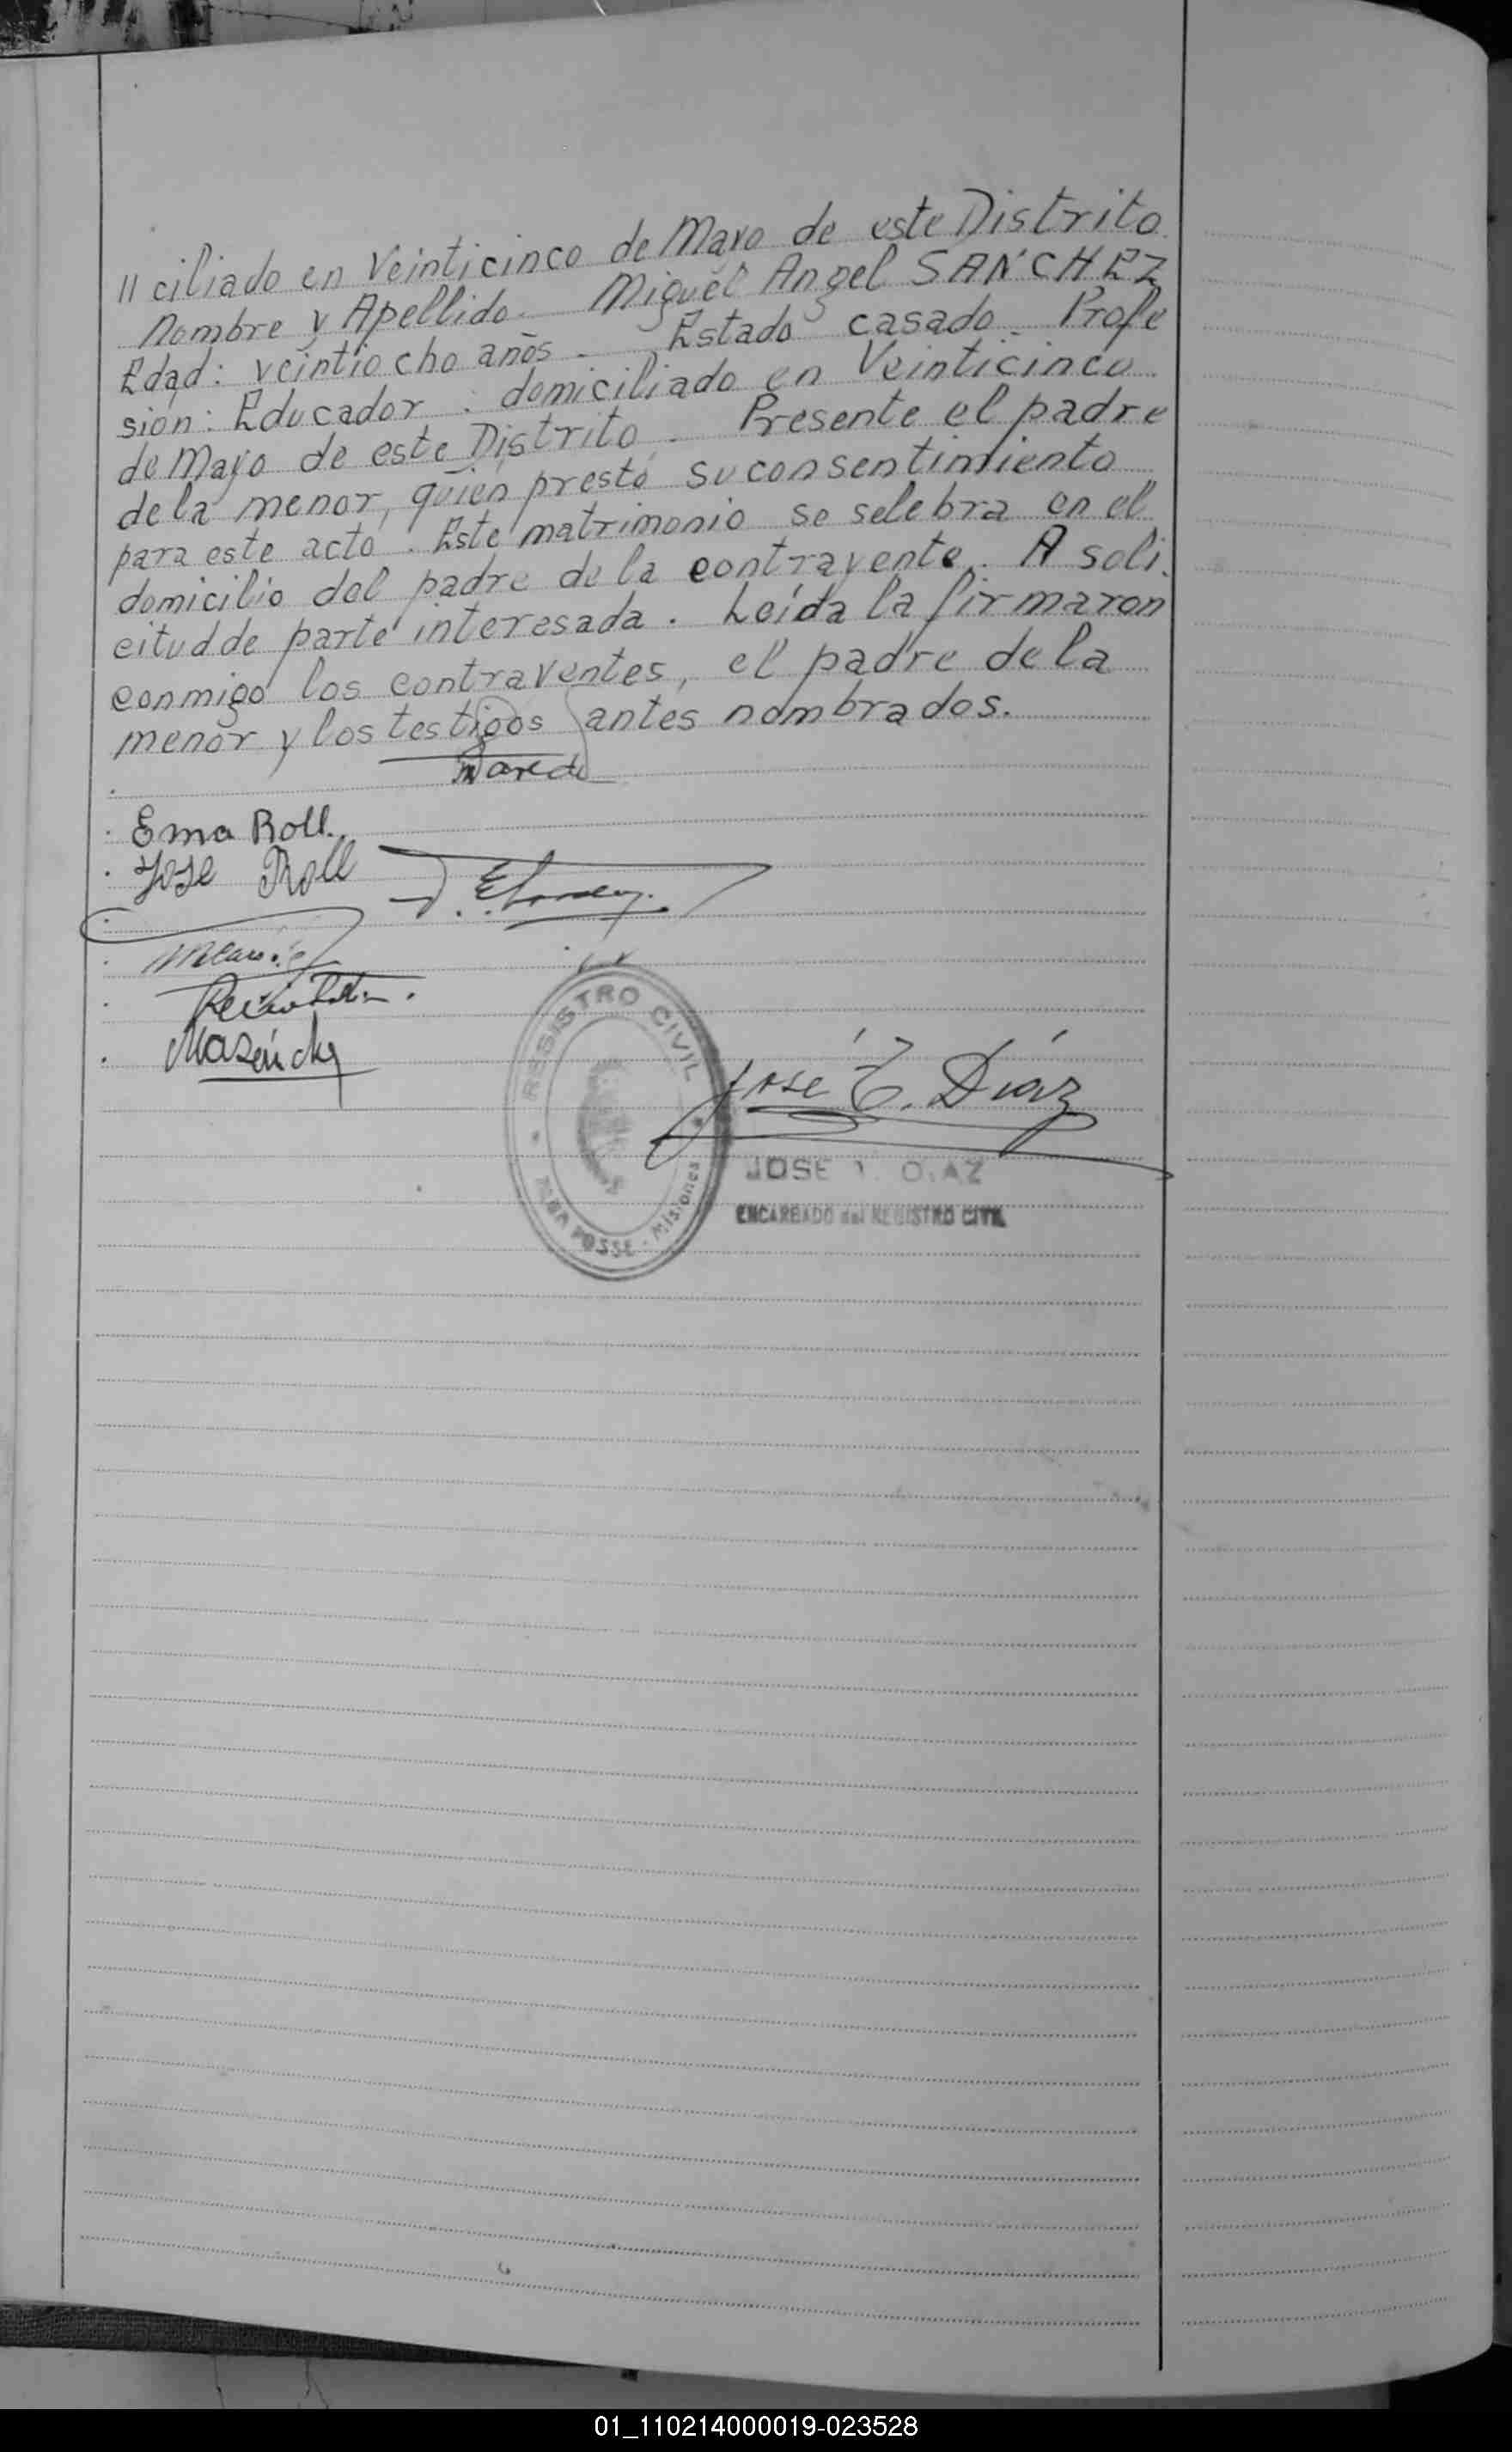 // ciliado en Veinticinco de Mayo de este Distrito.
Nombre y Apellido. Miguel Angel SANCHEZ
Edad: veintiocho años. Estado casado. Profe
sión: Educador. domiciliado en Veinticinco
de Mayo de este Distrito. Presente el padre
de la menor, quien prestó su consentimiento
para este acto. Este matrimonio se selebra en el
domicilio del padre de la contrayente. A soli.
citud de parte interesada. Leída la firmaron
conmigo los contrayentes, el padre de la
menor y los testigos antes nombrados.
Ema Roll.
José Roll
REGISTRO CIVIL
ALBA POSSE - Misiones
José T. Díaz
JOSE T. DIAZ
ENCARGADO del REGISTRO CIVIL
01_110214000019-023528